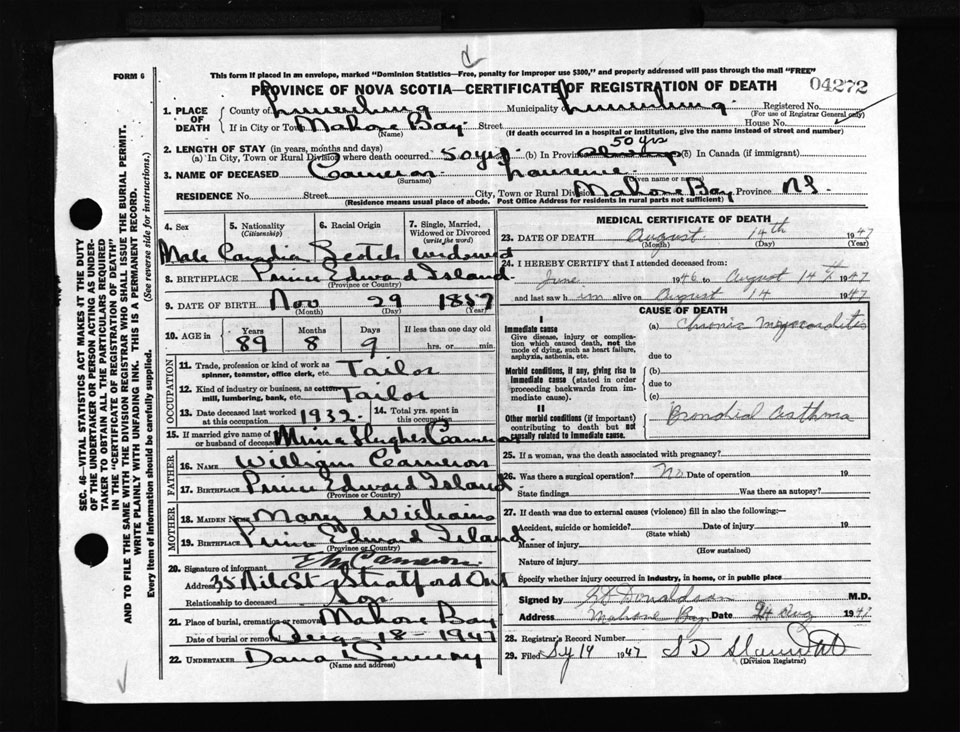 FORM 6
This form if placed in an envelope, marked "Dominion Statistics—Free, penalty for improper use $300," and properly addressed will pass through the mail "FREE"
PROVINCE OF NOVA SCOTIA—CERTIFICATE OF REGISTRATION OF DEATH
04272
1. PLACE OF DEATH
County of Lunenburg Municipality Lunenburg. Registered No.
(For use of Registrar General only)
If in City or Town Mahone Bay Street House No.
(Name) (If death occurred in a hospital or institution, give the name instead of street and number)
2. LENGTH OF STAY (in years, months and days) 50 yrs
(a) In City, Town or Rural Division where death occurred 50 yrs (b) In Province (c) In Canada (if immigrant)
3. NAME OF DECEASED Cameron Laurence
(Surname) (Given name or names)
RESIDENCE No. Street City, Town or Rural Division Mahone Bay Province N.S.
(Residence means usual place of abode. Post Office Address for residents in rural parts not sufficient)
4. Sex 5. Nationality (Citizenship) 6. Racial Origin 7. Single, Married, Widowed or Divorced (write the word)
Male Canadian Scotch widowed
8. BIRTHPLACE Prince Edward Island
(Province or Country)
9. DATE OF BIRTH Nov 29 1857
(Month) (Day) (Year)
10. AGE in Years Months Days If less than one day old
89 8 9 hrs. or min.
OCCUPATION
11. Trade, profession or kind of work as spinner, teamster, office clerk, etc. Tailor
12. Kind of industry or business, as cotton mill, lumbering, bank, etc. Tailor
13. Date deceased last worked at this occupation 1932. 14. Total yrs. spent in this occupation
15. If married give name of wife or husband of deceased Mina Hughes Cameron
FATHER
16. NAME William Cameron
17. BIRTHPLACE Prince Edward Island.
(Province or Country)
MOTHER
18. MAIDEN NAME Mary Williams
19. BIRTHPLACE Prince Edward Island.
(Province or Country)
20. Signature of informant Cameron.
Address 35 Nile St Stratford Ont
Relationship to deceased Son
21. Place of burial, cremation or removal Mahone Bay
Date of burial or removal Aug-18-1947
22. UNDERTAKER Dana Sweeny
(Name and address)
MEDICAL CERTIFICATE OF DEATH
23. DATE OF DEATH August. 14th 1947
(Month) (Day) (Year)
24. I HEREBY CERTIFY that I attended deceased from:
June 1946 to August 14th 1947
and last saw him alive on August 14 1947
CAUSE OF DEATH
I
Immediate cause
Give disease, injury or complication which caused death, not the mode of dying, such as heart failure, asphyxia, asthenia, etc.
(a) Chronic Myocarditis
due to
Morbid conditions, if any, giving rise to immediate cause (stated in order proceeding backwards from immediate cause).
(b)
due to
(c)
II
Other morbid conditions (if important) contributing to death but not causally related to immediate cause.
Bronchial Asthma
25. If a woman, was the death associated with pregnancy?
26. Was there a surgical operation? No Date of operation 19
State findings Was there an autopsy?
27. If death was due to external causes (violence) fill in also the following:—
Accident, suicide or homicide? Date of injury 19
(State which)
Manner of injury
(How sustained)
Nature of injury
Specify whether injury occurred in industry, in home, or in public place
Signed by Donaldson M.D.
Address Mahone Bay Date Aug 1947
28. Registrar's Record Number
29. Filed 19 1947 S D
(Division Registrar)
SEC. 46—VITAL STATISTICS ACT MAKES IT THE DUTY
OF THE UNDERTAKER OR PERSON ACTING AS UNDER-
TAKER TO OBTAIN ALL THE PARTICULARS REQUIRED
IN THE "CERTIFICATE OF REGISTRATION OF DEATH"
AND TO FILE THE SAME WITH THE DIVISION REGISTRAR WHO SHALL ISSUE THE BURIAL PERMIT.
WRITE PLAINLY WITH UNFADING INK. THIS IS A PERMANENT RECORD.
Every item of Information should be carefully supplied. (See reverse side for instructions.)